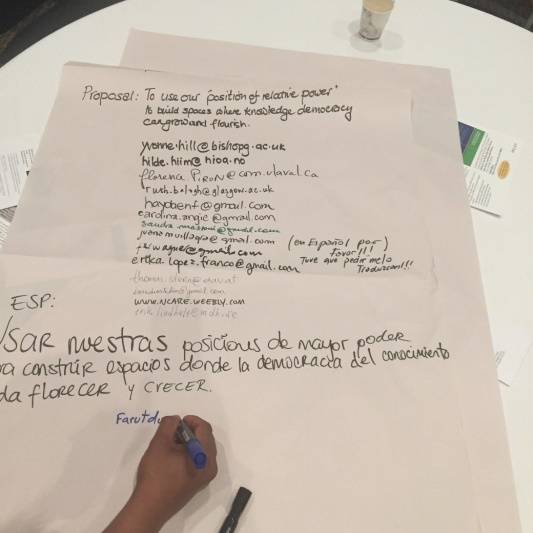 Proposal: To use our position of relative power
to build spaces where knowledge democracy
can grow and flourish.
yvonne.hill@bishopg.ac.uk
hilde.hiim@hioa.no
florence PIRON@com.ulaval.ca
ruth.balogh@glasgow.ac.uk
haydbenf@gmail.com
cardina.angie@gmail.com
@gmail.com
@gmail.com (en Español por
@gmail.com favor!!!
erika.lopez.franco@gmail.com Tuve que pedir melo
Traduzcan!!!
WWW.NCARE.WEEBLY.COM
ESP:
USAR nuestras posiciones de mayor poder
a construir espacios donde la democracia del conocimiento
da florecer y crecer.